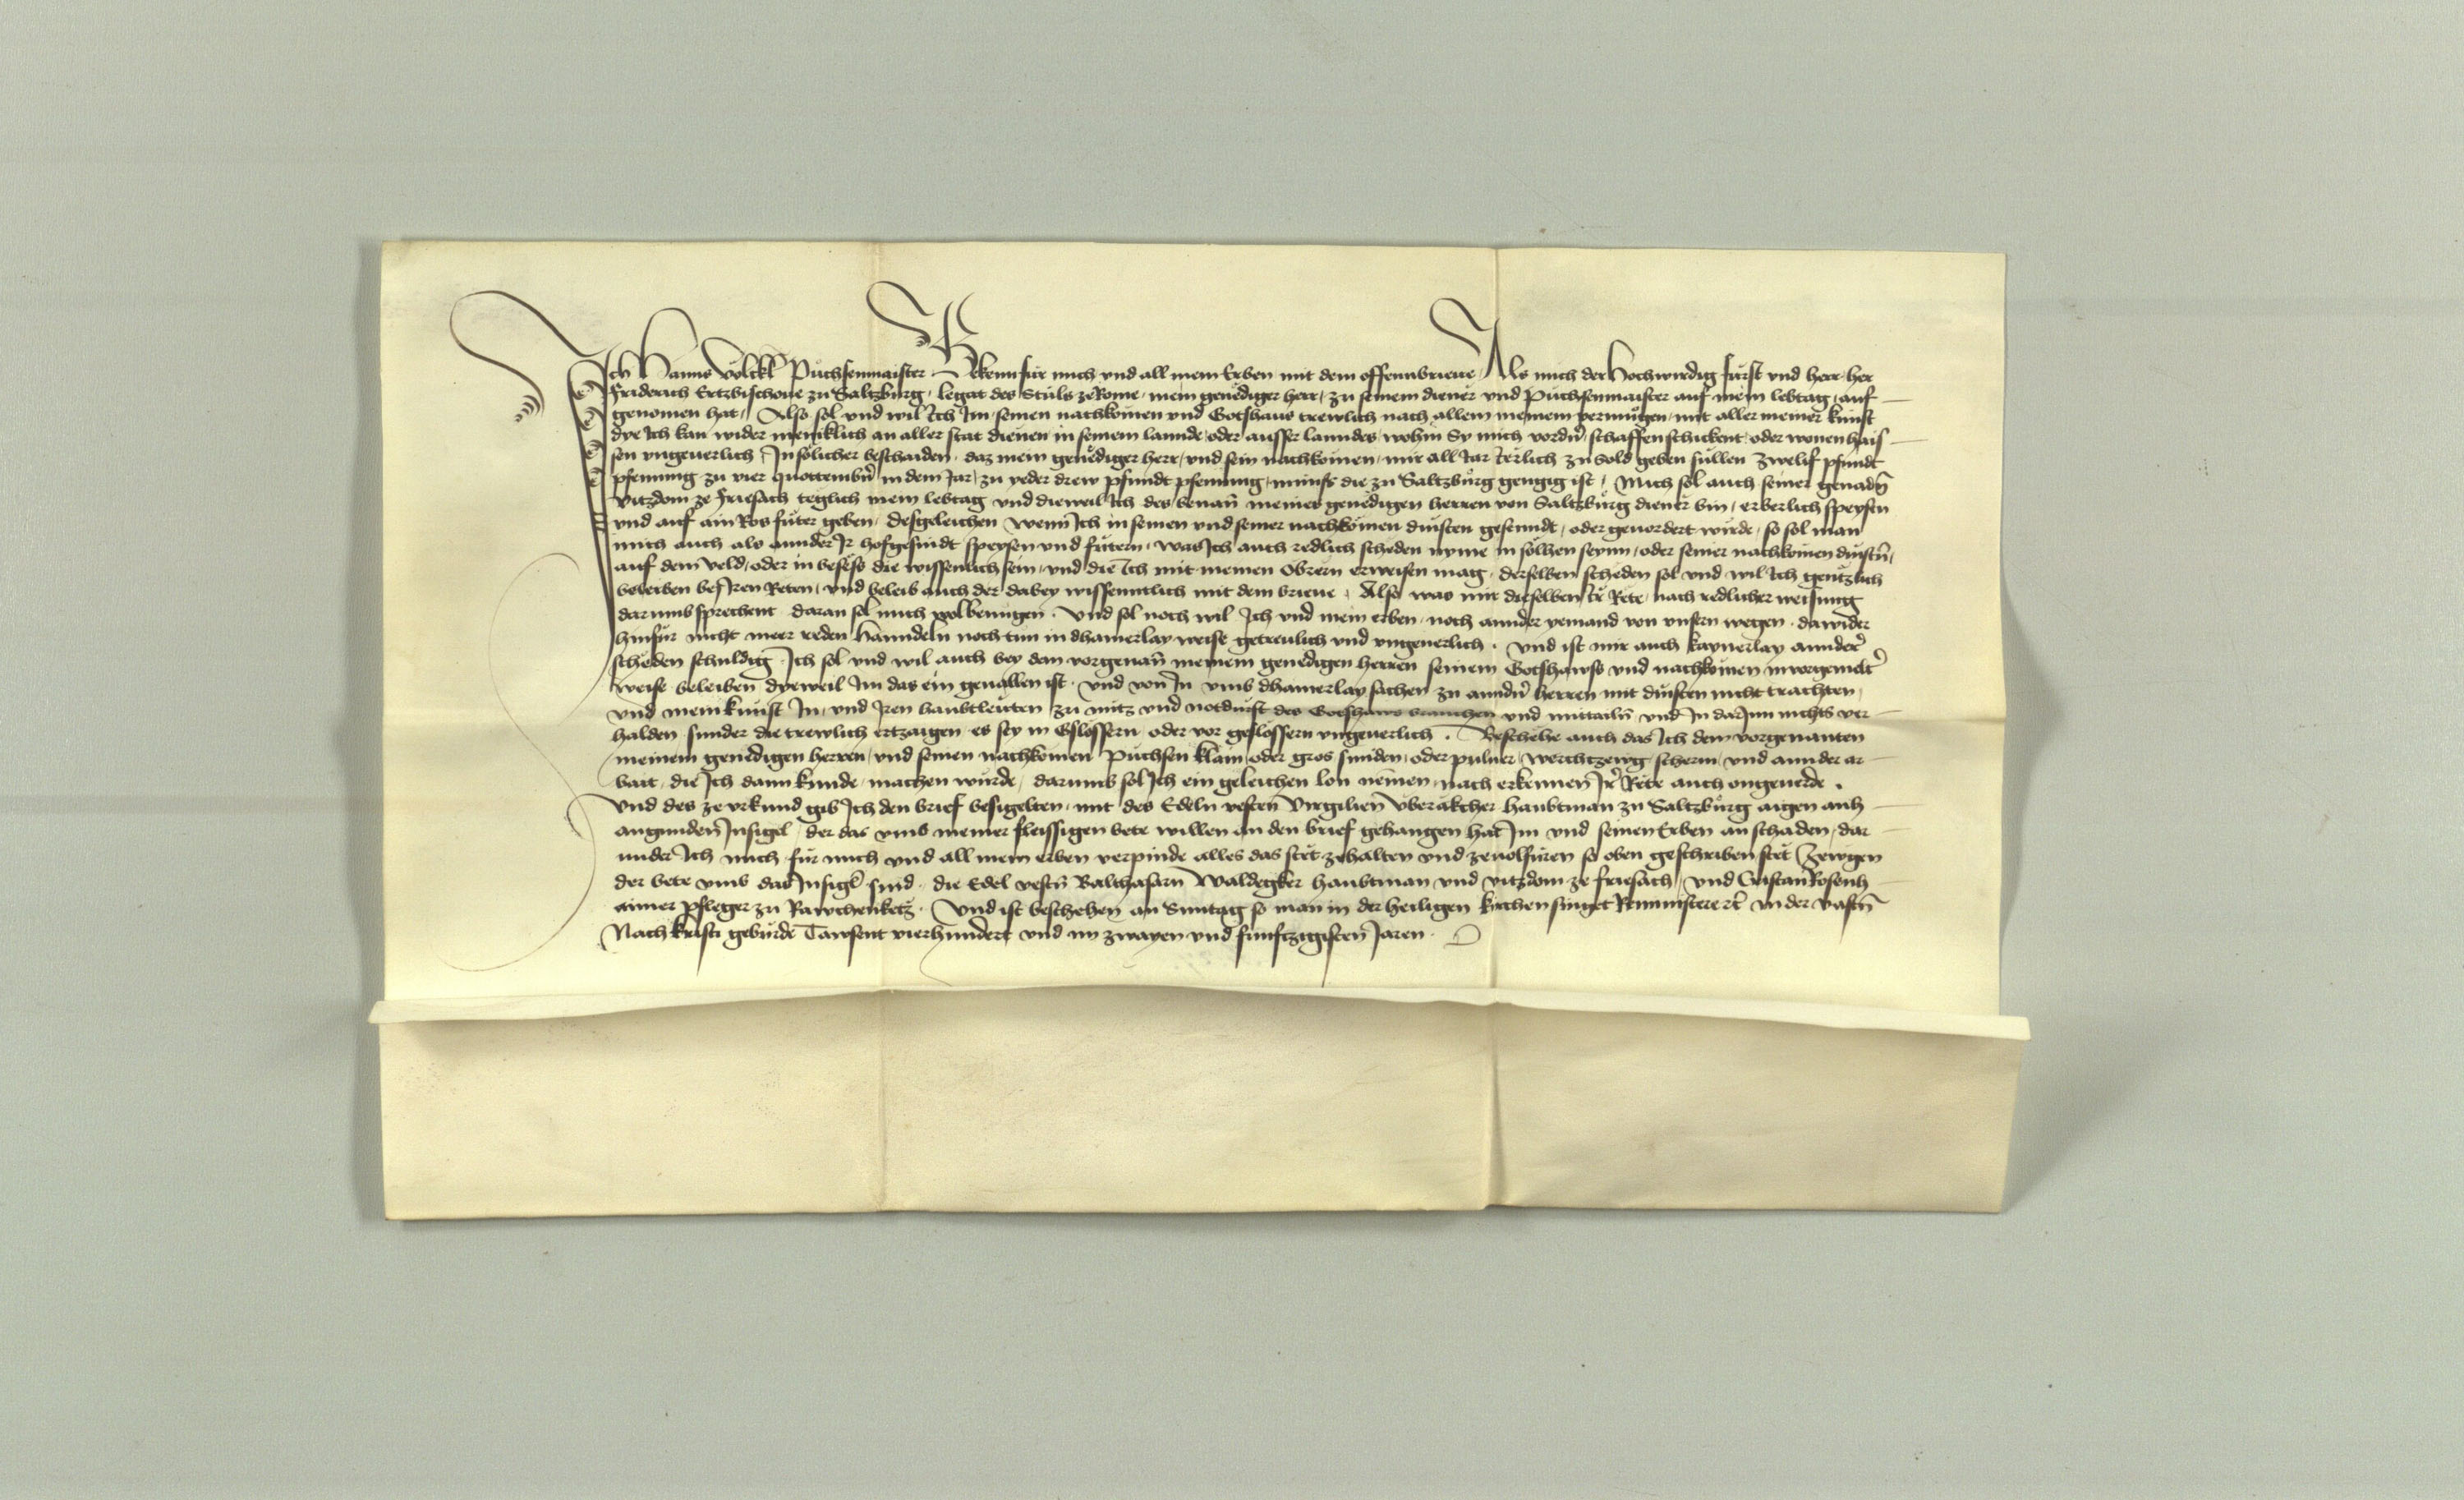 Ich Hanns Völckl Puchsenmaister Bekenn für mich vnd all mein Erben mit dem offenn brieue Als mich der Hochwirdig fürst vnd herr her
Friderich Ertzbischoue zu Saltzburg, legat des Stuls ze Rome, mein genediger herr, zu seinem diener vnd Puchsenmaister auf mein lebtag auf
genomen hat, Also sol vnd wil Ich Im seinen nachkomen vnd Gotshaus trewlich nach allem meinem vermugen, mit aller meiner kunst
dye Ich kan wider meniklich an aller stat dienen in seinem lannde, oder ausser lanndes, wohin Sy mich vordn̄ schaffen schickent, oder wonen hais
sen vngeuerlich, In sölicher beschaiden, daz mein genediger herr, vnd sein nachkomen, mir all Jar Jerlich zu Sold geben süllen zwelif pfundt
pfenning zu vier quottembn̄ in dem Jar, zu yeder drew pfundt pfenning, münss die zu Saltzburg gengig ist, Mich sol auch seiner genadn̄
vitzdom ze Friesach teglich mein lebtag vnd dieweil Ich des benan̄ meines genedigen herren von Saltzburg diener bin, erberlich speysen
vnd auf ain Ros futer geben, desgeleichen wenn Ich in seinen vnd seiner nachkömen dinsten gesenndt, oder geuordert wurde, so sol man
mich auch als annder Ir hofgesindt speysen vnd fütern, was Ich auch redlich scheden nyme in sölhen seynn, oder seiner nachkomen dinstn̄,
auf dem veld, oder in besess die wissenlich sein, vnd die Ich mit meinen Obrern erweisen mag, derselben scheden sol vnd wil Ich gentzlich
beleiben bej Iren Reten, vnd beleib auch der dabey wissenntlich mit dem brieue, Also was mir dieselben Ir Rete, nach redlicher weisung
darumb sprechent daran sol mich wol benügen. Vnd sol noch wil Ich vnd mein erben, noch annder yemand von vnsern wegen, dawider
hinfür nicht meer reden hanndeln noch tun in dhainerlay weise getreulich vnd vngeuerlich. Vnd ist mir auch kaynerlay annder
scheden schuldig Ich sol vnd wil auch bey dem vorgenan̄ meinem genedigen herren seinem Gotshawss vnd nachkomen in vorgemelt
weise beleiben dyeweil Im das ein geuallen ist, vnd von In vmb dhainerlay sachen zu anndn̄ herren mit dinsten nicht trachten,
vnd mein kunst In, vnd Iren haubtleuten zu nutz vnd notdurft des Gotshaws brauchen vnd mittailn̄ vnd In darInn nichts ver
halden sunder die trewlich ertzaigen es sey in Gslössern oder vor geslössern vngeuerlich. Beschehe auch das Ich dem vorgenanten
meinem genedigen herren, vnd seinen nachkomen Puchsen klain oder gros sunden, oder puluer, werchtzewg scherm, vnd annder ar
bait, die Ich dann kunde, machen wurde, darumb sol Ich ein geleichen lon nemen, nach erkennen Ir Rete auch ongeuerde.
Vnd des ze vrkund gib Ich den brief besigelten, mit des Edeln vesten Virgilien Vberäkcher haubtman zu Saltzburg aigen anh
angunden̄ Insigel, der das vmb meiner fleissigen bete willen an den brief gehangen hat Im vnd seinen Erben an schaden, dar
under Ich mich für mich vnd all mein erben verpinde alles das stet zehalten vnd zeuolfüren so oben geschriben stet Zewgen
der bete vmb das Insigl sind, die Edel vestn̄ Balthasarn Waldegker haubtman vnd vitzdom ze friesach, vnd Cristan Rosenh
aimer pfleger zu Rawchenketz. Vnd ist beschehen an Suntag so man in der heiligen kirchen singet Reministere rc̄ in der vastn̄
Nach kristi geburde Tawsent vierhundert vnd im zwayen vnd funfftzigisten Jaren.